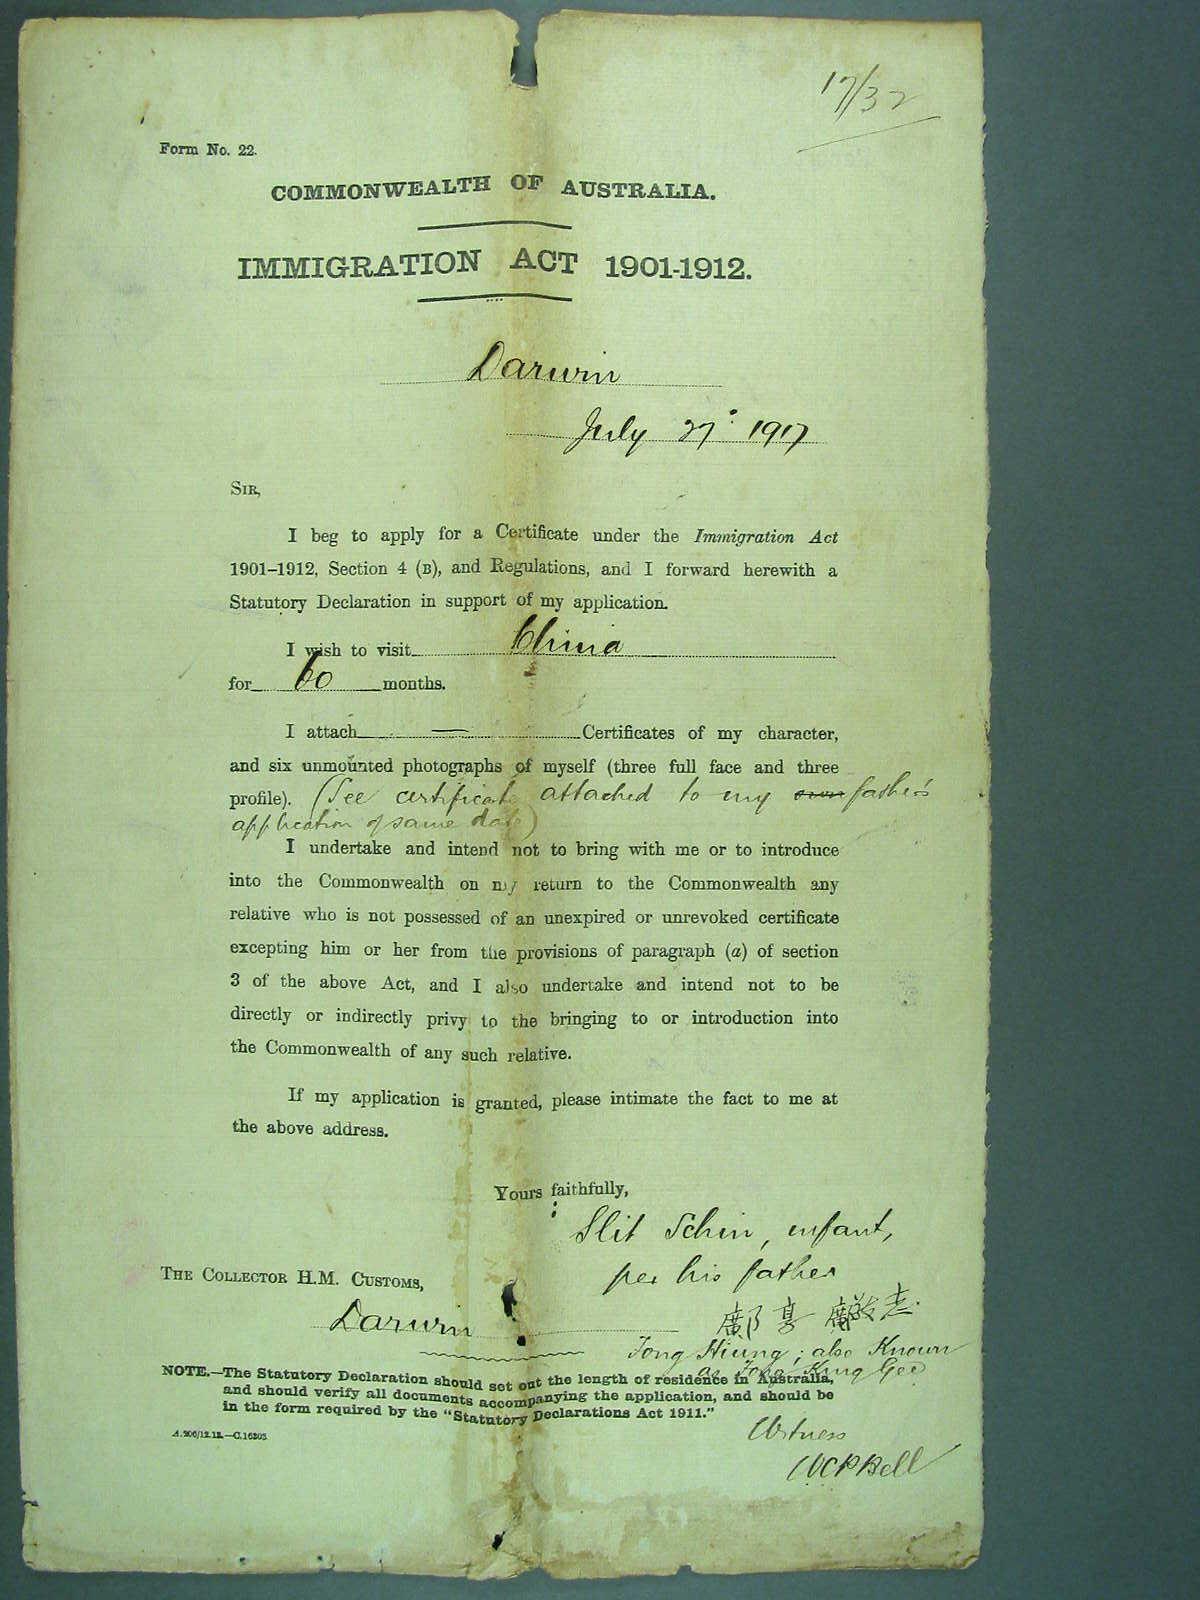 17/32
Form No. 22.
COMMONWEALTH OF AUSTRALIA.
IMMIGRATION ACT 1901-1912.
Darwin
July 27 1917
SIR,
I beg to apply for a Certificate under the Immigration Act
1901–1912, Section 4 (B), and Regulations, and I forward herewith a
Statutory Declaration in support of my application.
I wish to visit China
for 60 months.
I attach — Certificates of my character,
and six unmounted photographs of myself (three full face and three
profile). (See certificate attached to my own father's
application of same date)
I undertake and intend not to bring with me or to introduce
into the Commonwealth on my return to the Commonwealth any
relative who is not possessed of an unexpired or unrevoked certificate
excepting him or her from the provisions of paragraph (a) of section
3 of the above Act, and I also undertake and intend not to be
directly or indirectly privy to the bringing to or introduction into
the Commonwealth of any such relative.
If my application is granted, please intimate the fact to me at
the above address.
Yours faithfully,
Slit Schin, infant,
per his father
THE COLLECTOR H.M. CUSTOMS,
Darwin
Fong Hiung; also Known
as Fong King Gee
NOTE.—The Statutory Declaration should set out the length of residence in Australia,
and should verify all documents accompanying the application, and should be
in the form required by the "Statutory Declarations Act 1911."
Witness
A.206/12.12.—C.16303
WCPBell